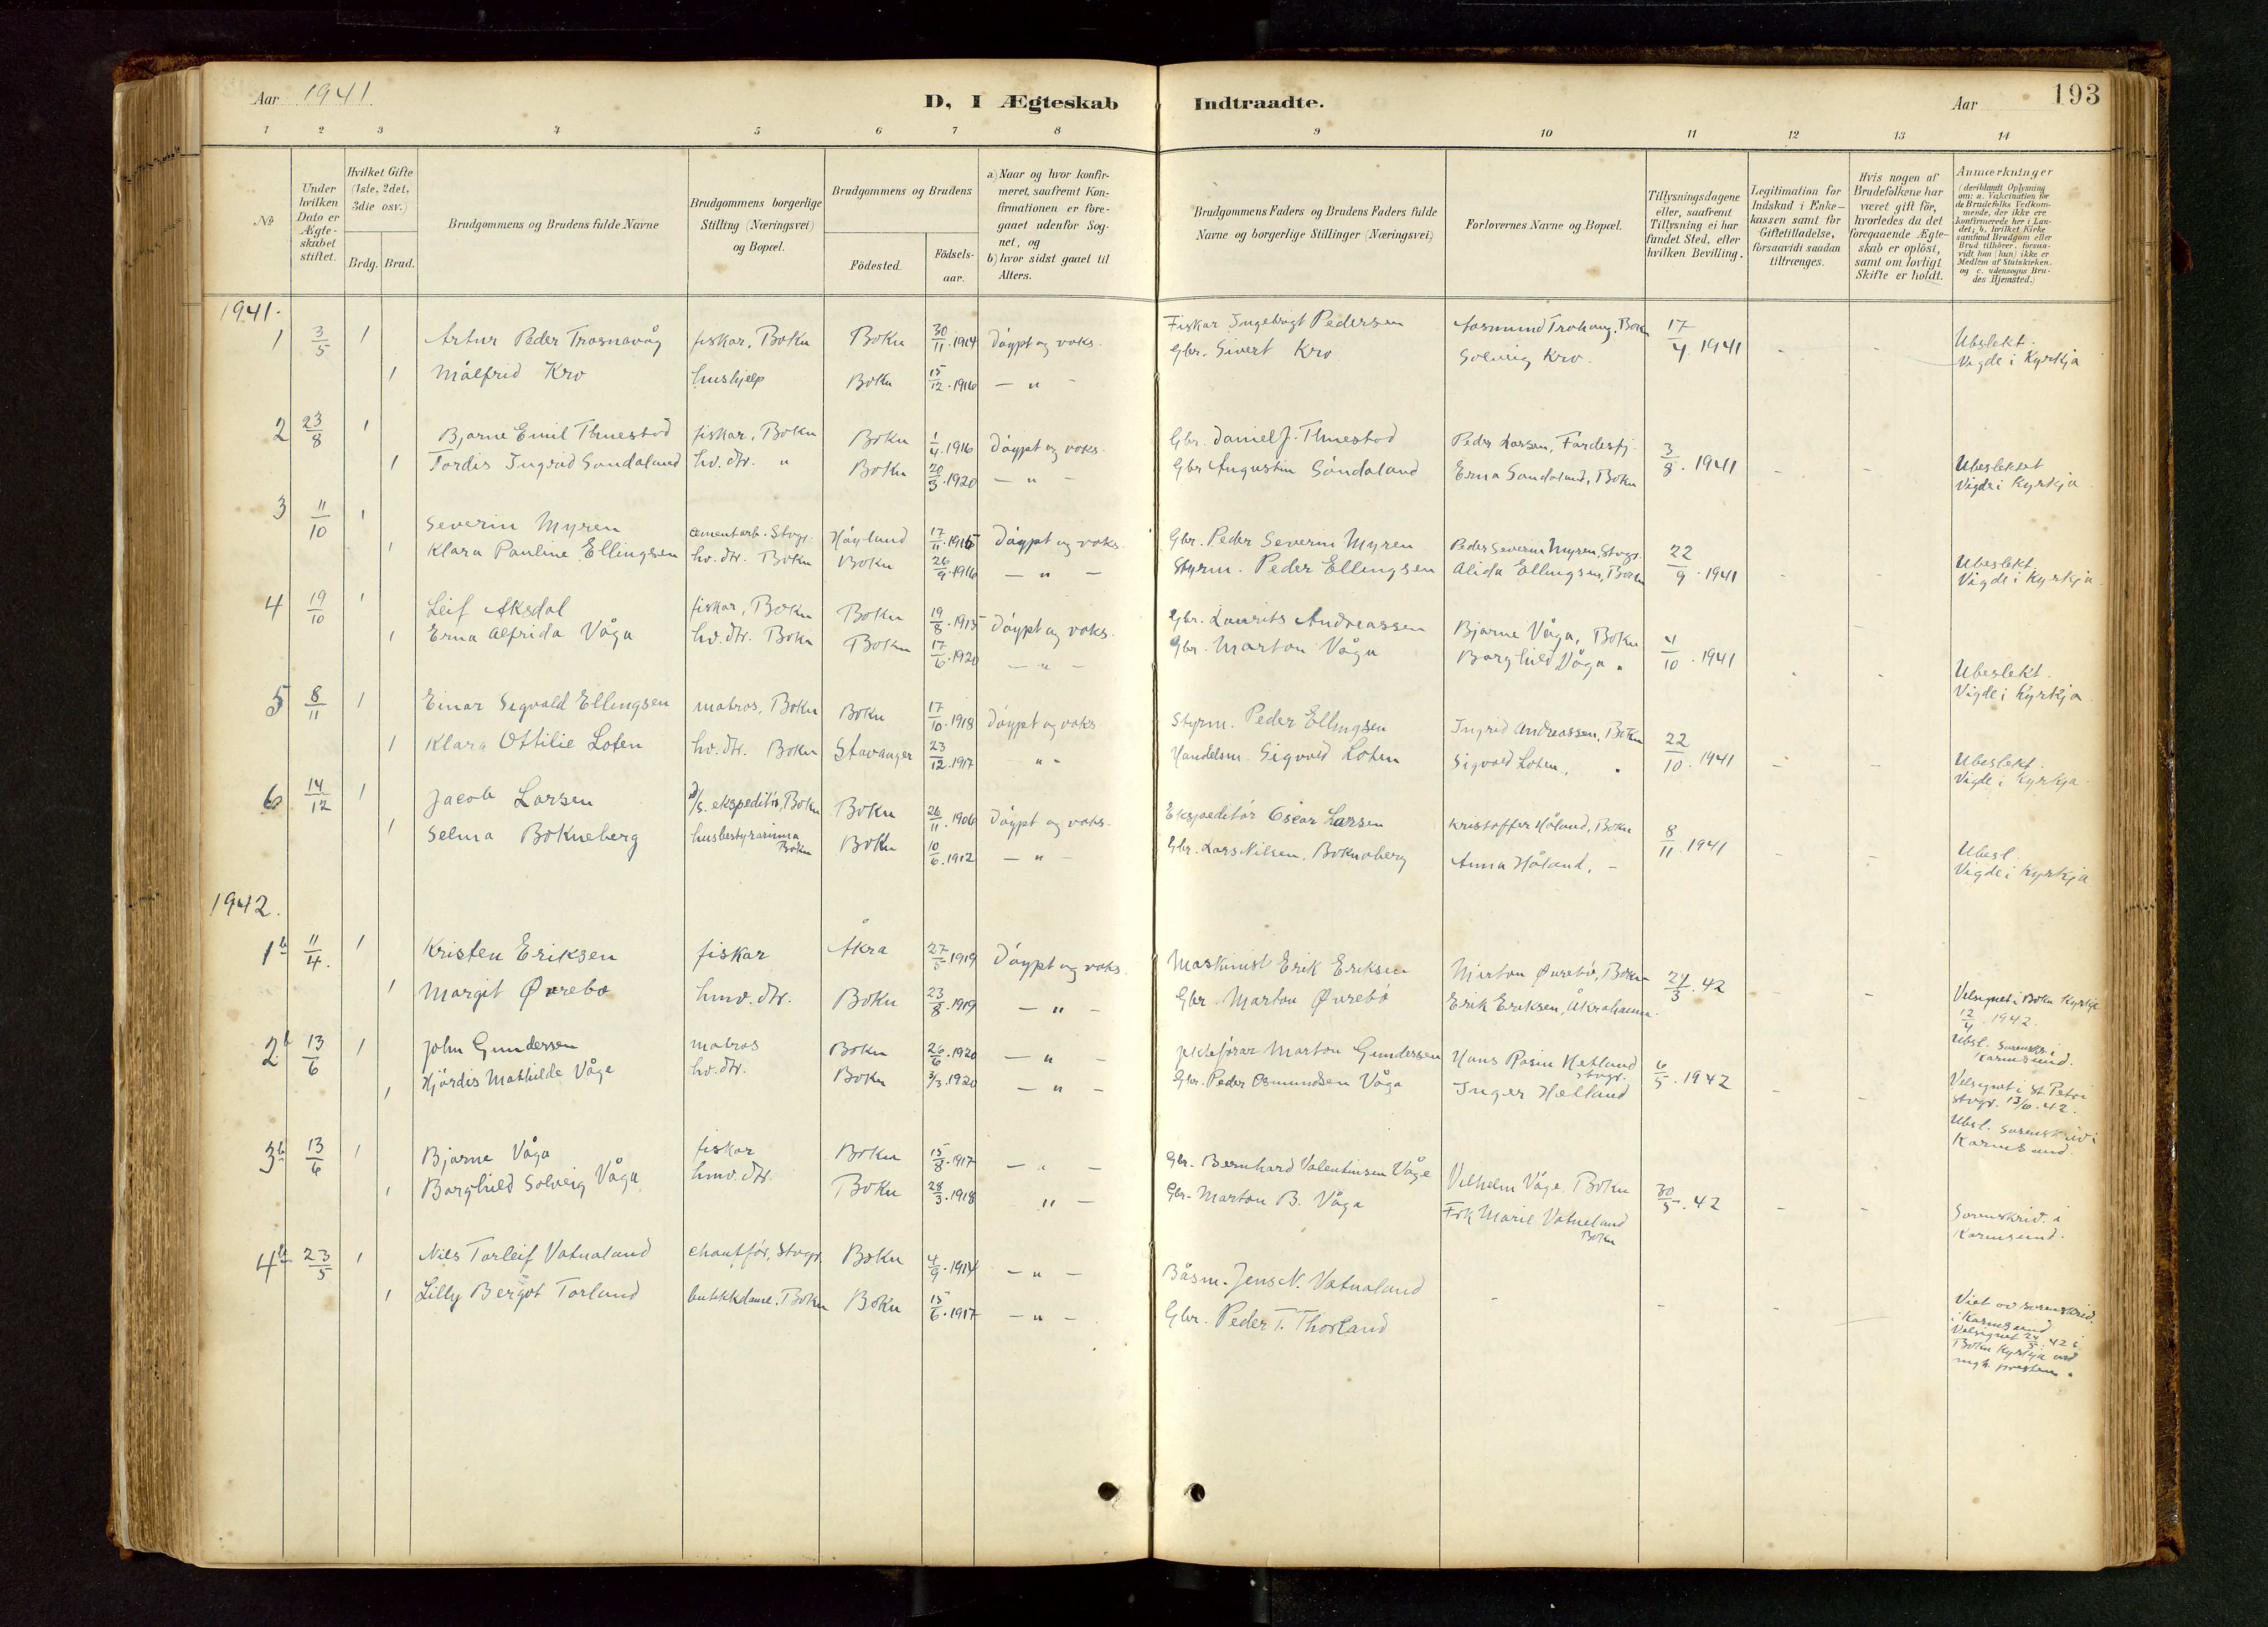 Aar 1941.
D, I Ægteskab Indtraadte.
Aar 193
1 2 3 4 5 6 7 8 9 10 11 12 13 14
No
Under hvilken Dato er Ægteskabet stiftet.
Hvilket Gifte (1ste, 2det, 3die osv.)
Brdg. Brud.
Brudgommens og Brudens fulde Navne
Brudgommens borgerlige Stilling (Næringsvei) og Bopæl.
Brudgommens og Brudens
Födested. Födselsaar.
a) Naar og hvor konfirmeret, saafremt Konfirmationen er foregaaet udenfor Sognet, og
b) hvor sidst gaaet til Alters.
Brudgommens Faders og Brudens Faders fulde Navne og borgerlige Stillinger (Næringsvei)
Forlovernes Navne og Bopæl.
Tillysningsdagene eller, saafremt Tillysning ei har fundet Sted, efter hvilken Bevilling.
Legitimation for Indskud i Enkekassen samt for Giftetilladelse, forsaavidt saadan tiltrænges.
Hvis nogen af Brudefolkene har været gift för, hvorledes da det foregaaende Ægteskab er oplöst, samt om lovligt Skifte er holdt.
Anmærkninger (deriblandt Oplysning om: a. Vakcination for de Brudefolks Vedkommende, der ikke ere konfirmerede her i Landet; b. hvilket Kirkesamfund Brudgom eller Brud tilhörer, forsaavidt han (hun) ikke er Medlem af Statskirken, og c. udensogns Brudes Hjemsted.)
1941.
1 3/5 1 Artur Peder Trosnavåg fiskar, Bokn Bokn 30/11.1914 Döypt og voks. Fiskar Ingebrigt Pedersen Aasmund Trohaug, Bokn 17/4 1941 - - Ubslekt.
1 Målfrid Kro hushjelp Bokn 15/12.1916 — " — Gbr. Sivert Kro Solveig Kro. Vigde i Kyrkja
2 23/8 1 Bjarne Emil Thuestad fiskar, Bokn Bokn 1/4.1916 Döypt og voks. Gbr. Daniel J. Thuestad Peder Larsen, Fardesfj. 3/8. 1941 - - Ubeslektet
1 Tordis Ingrid Sandaland hv. dtr. " Bokn 20/3.1920 — " — Gbr Augustin Sandaland Erna Sandaland, Bokn Vigde i Kyrkja
3 11/10 1 Severin Myren cementarb. Stvgr. Höyland 17/11.1915 Döypt og voks. Gbr. Peder Severin Myren Peder Severin Myren, Stvgr. 22/9. 1941 - - Ubeslekt.
1 Klara Pauline Ellingsen hv. dtr. Bokn Bokn 26/9.1916 — " — Styrm. Peder Ellingsen Alida Ellingsen, Bokn Vigde i Kyrkja.
4 19/10 1 Leif Aksdal fiskar, Bokn Bokn 19/8.1915 Döypt og voks. Gbr. Laurits Andreassen Bjarne Våga, Bokn 4/10. 1941 - - Ubeslekt.
1 Erna Alfrida Våga hv. dtr. Bokn Bokn 17/6.1920 — " — Gbr. Marton Våga Borghild Våga " Vigde i Kyrkja
5 8/11 1 Einar Sigvald Ellingsen matros, Bokn Bokn 17/10.1918 Döypt og voks Styrm. Peder Ellingsen Ingrid Andreassen, Bokn 22/10. 1941 - - Ubeslekt.
1 Klara Ottilie Loten hv. dtr. Bokn Stavanger 23/12.1917 " - Handelsm. Sigvald Loten Sigvald Loten, " Vigde i Kyrkja.
6 14/12 1 Jacob Larsen D/S. ekspeditör, Bokn Bokn 26/11.1906 Döypt og voks. Ekspeditör Oscar Larsen Kristoffer Håland, Bokn 8/11.1941 - - Ubesl.
1 Selma Bokneberg husbestyrarinna Bokn Bokn 10/6.1912 — " — Gbr. Lars Nilsen, Bokneberg Anna Håland, - Vigde i Kyrkja
1942.
1b 11/4. 1 Kristen Eriksen fiskar Åkra 27/5.1919 Döypt og voks. Maskinist Erik Eriksen Marton Øvrebö, Bokn 24/3. 42 - -
1 Margit Øvrebo hmv. dtr. Bokn 23/8.1919 — " — Gbr. Marton Øvrebö Erik Eriksen, Åkrahamn. Velsignet i Bokn Kyrkje 12/4. 1942.
Ubsl. Sorenskr. i Karmsund.
2b 13/6 1 John Gundersen matros Bokn 26/6.1920 — " — Jekteförar Marton Gundersen Hans Rasm Hetland Stvgr. 6/5. 1942 - -
1 Hjördis Mathilde Våge hv. dtr. Bokn 3/3.1920 — " — Gbr. Peder Osmundsen Våga Inger Hetland Velsignet i St. Petri Stvgr. 13/6. 42.
Ubsl. Sorenskriv i Karmsund.
3b 13/6 1 Bjarne Våga fiskar Bokn 15/8.1917 — " — Gbr. Bernhard Valentinsen Våge Vilhelm Våge. Bokn 30/5. 42 - -
1 Borghild Solveig Våga hmv. dtr. Bokn 28/3.1918 " — Gbr. Marton B. Våga Frk Marie Vatneland Bokn Sorenskriv. i Karmsund.
4b 23/5 1 Nils Torleif Vatnaland chaufför, Stvgr. Bokn 4/9.1914 — " — Båsm. Jens N. Vatnaland - - -
1 Lilly Bergot Torland butikkdame. Bokn Bokn 15/6.1917 — " — Gbr. Peder T. Thorland Viet av sorenskriv. i Karmsund
Velsignet 24/5. 42 i Bokn Kyrkja ved